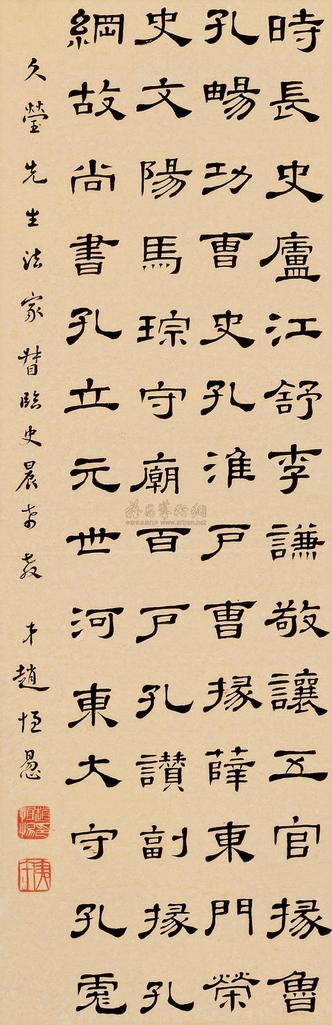 時長史廬江舒李謙敬讓五官掾魯
孔暢功曹史孔淮戶曹掾薛東門榮
史文陽馬琮守廟百戶孔讃副掾孔
綱故尚書孔立元世河東大守孔彪
久瑩先生法家督臨史晨 教 弟趙恒惖